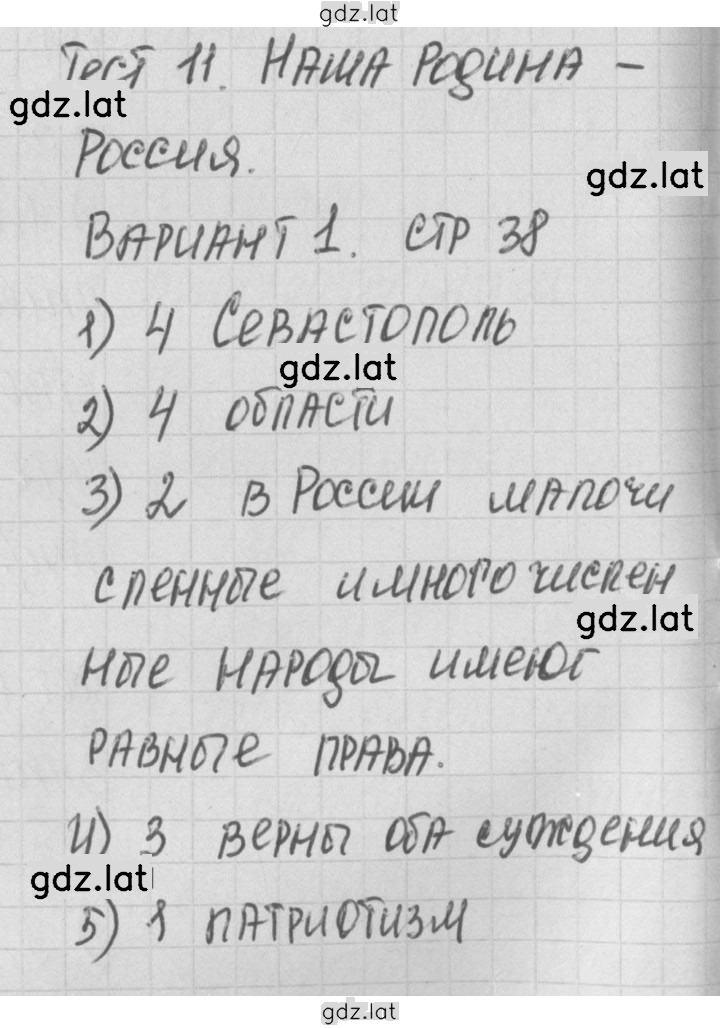 gdz.lat
Тест 11. Наша Родина -
gdz.lat
Россия.
gdz.lat
Вариант 1. стр 38
1) 4 Севастополь
gdz.lat
2) 4 области
3) 2 в России малочи
сленные и многочислен
gdz.lat
ные народы имеют
равные права.
4) 3 верны оба суждения
gdz.lat
5) 1 патриотизм
gdz.lat